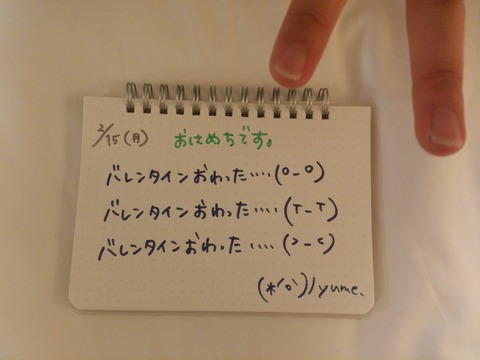 2/15(月) おはめちです。
バレンタインおわった....(o_o)
バレンタインおわった....(T_T)
バレンタインおわった....(>_<)
(*'o')/yume.